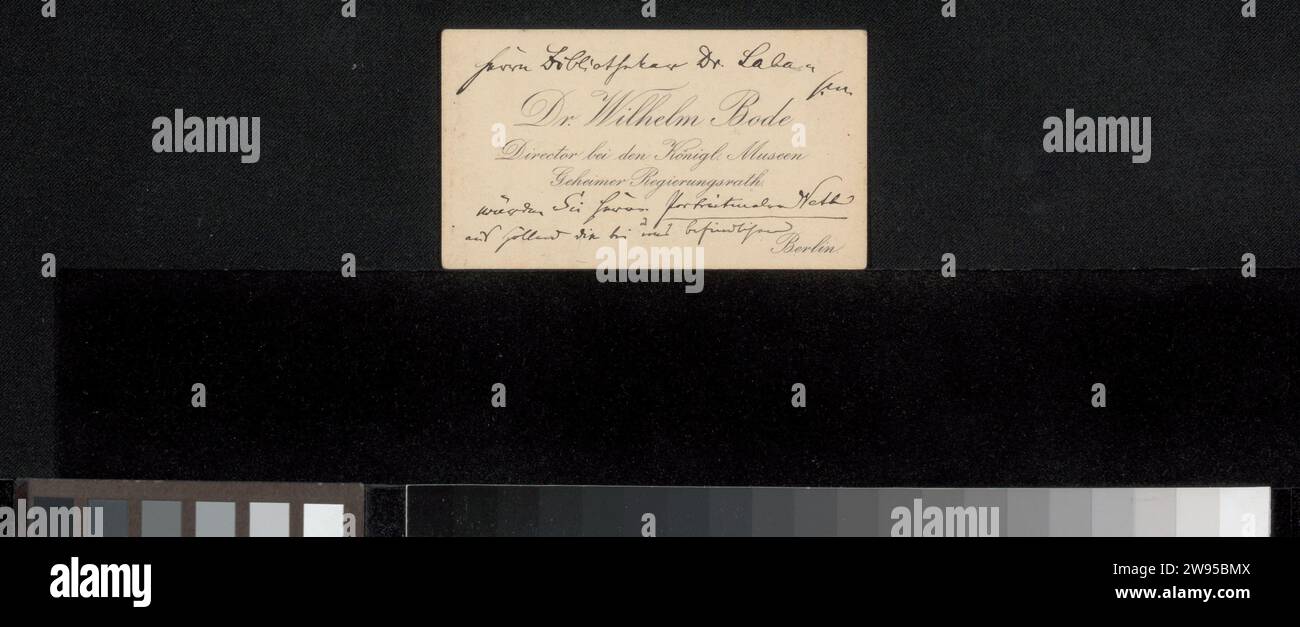 alamy
alamy
Herrn Bibliothekar Dr. Laban
Dr. Wilhelm Bode
Director bei den Königl. Museen
Geheimer Regierungsrath.
würden Sie Herrn Porträtmaler Veth
aus Holland die bei uns befindlichen
Berlin.
alamy
a
a
a
a
a
a
a
a
a
a
a
a
alamy
alamy
Image ID: 2W95BMX
www.alamy.com